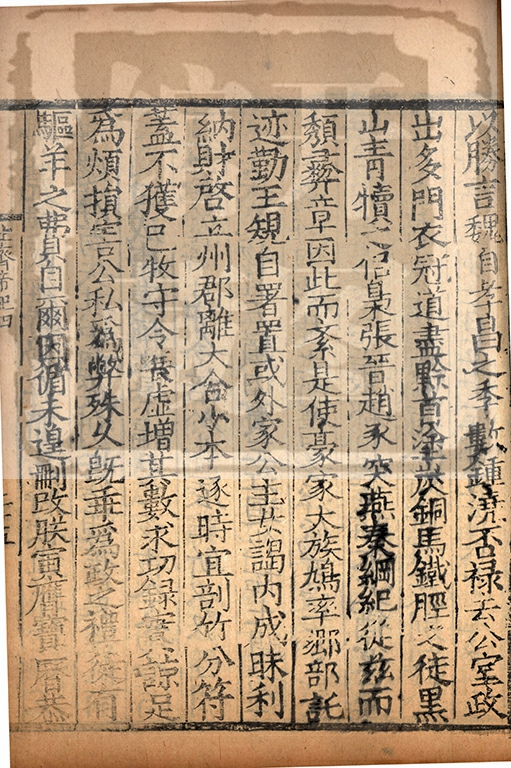 以勝言魏自孝昌之季數鍾澆否祿去公室政
出多門衣冠道盡黔首塗炭銅馬鐵脛之徒黑
山青犢之侶梟張晉趙豕突燕秦綱紀從茲而
頹彝章因此而紊是使豪家大族鳩率鄉部託
迹勤王規自署置或外家公主女謁内成昧利
納財啓立州郡離大合小本逐時宜剖竹分符
蓋不獲已牧守令長虛增其數求功録實諒足
為煩損害公私為弊殊久旣乖為政之禮徒有
驅羊之費自爾因循未遑刪改朕寅膺寶曆恭